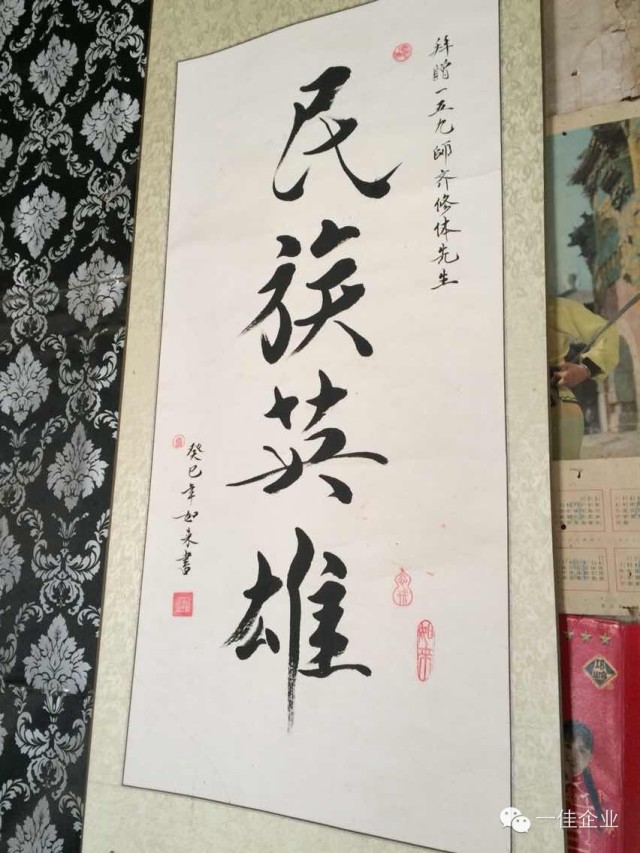 拜赠一五九师齐修体先生
民族英雄
癸巳年如来書
如来
一佳企业